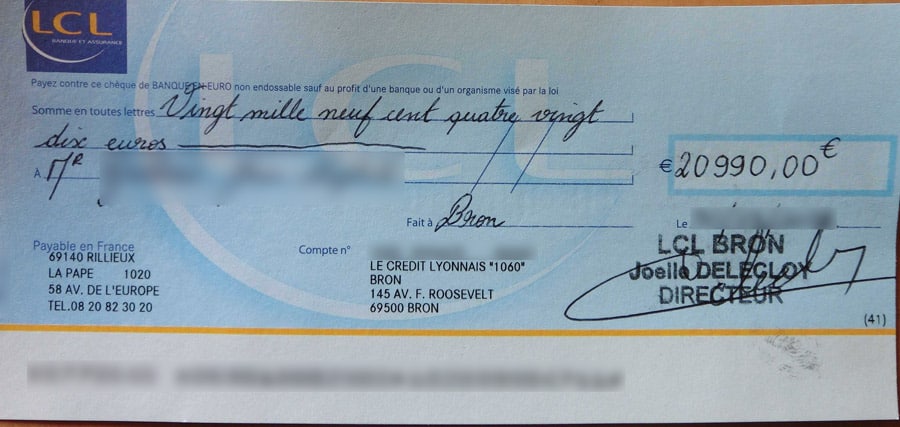 LCL
BANQUE ET ASSURANCE
Payez contre ce chèque de BANQUE EN EURO non endossable sauf au profit d'une banque ou d'un organisme visé par la loi
Somme en toutes lettres Vingt mille neuf cent quatre vingt
dix euros
€ 20990,00 €
À Mr
Fait à Bron
Le
Payable en France
69140 RILLIEUX
LA PAPE 1020
58 AV. DE L'EUROPE
TEL.08 20 82 30 20
Compte n°
LE CREDIT LYONNAIS "1060"
BRON
145 AV. F. ROOSEVELT
69500 BRON
LCL BRON
Joelle DELECLOY
DIRECTEUR
(41)